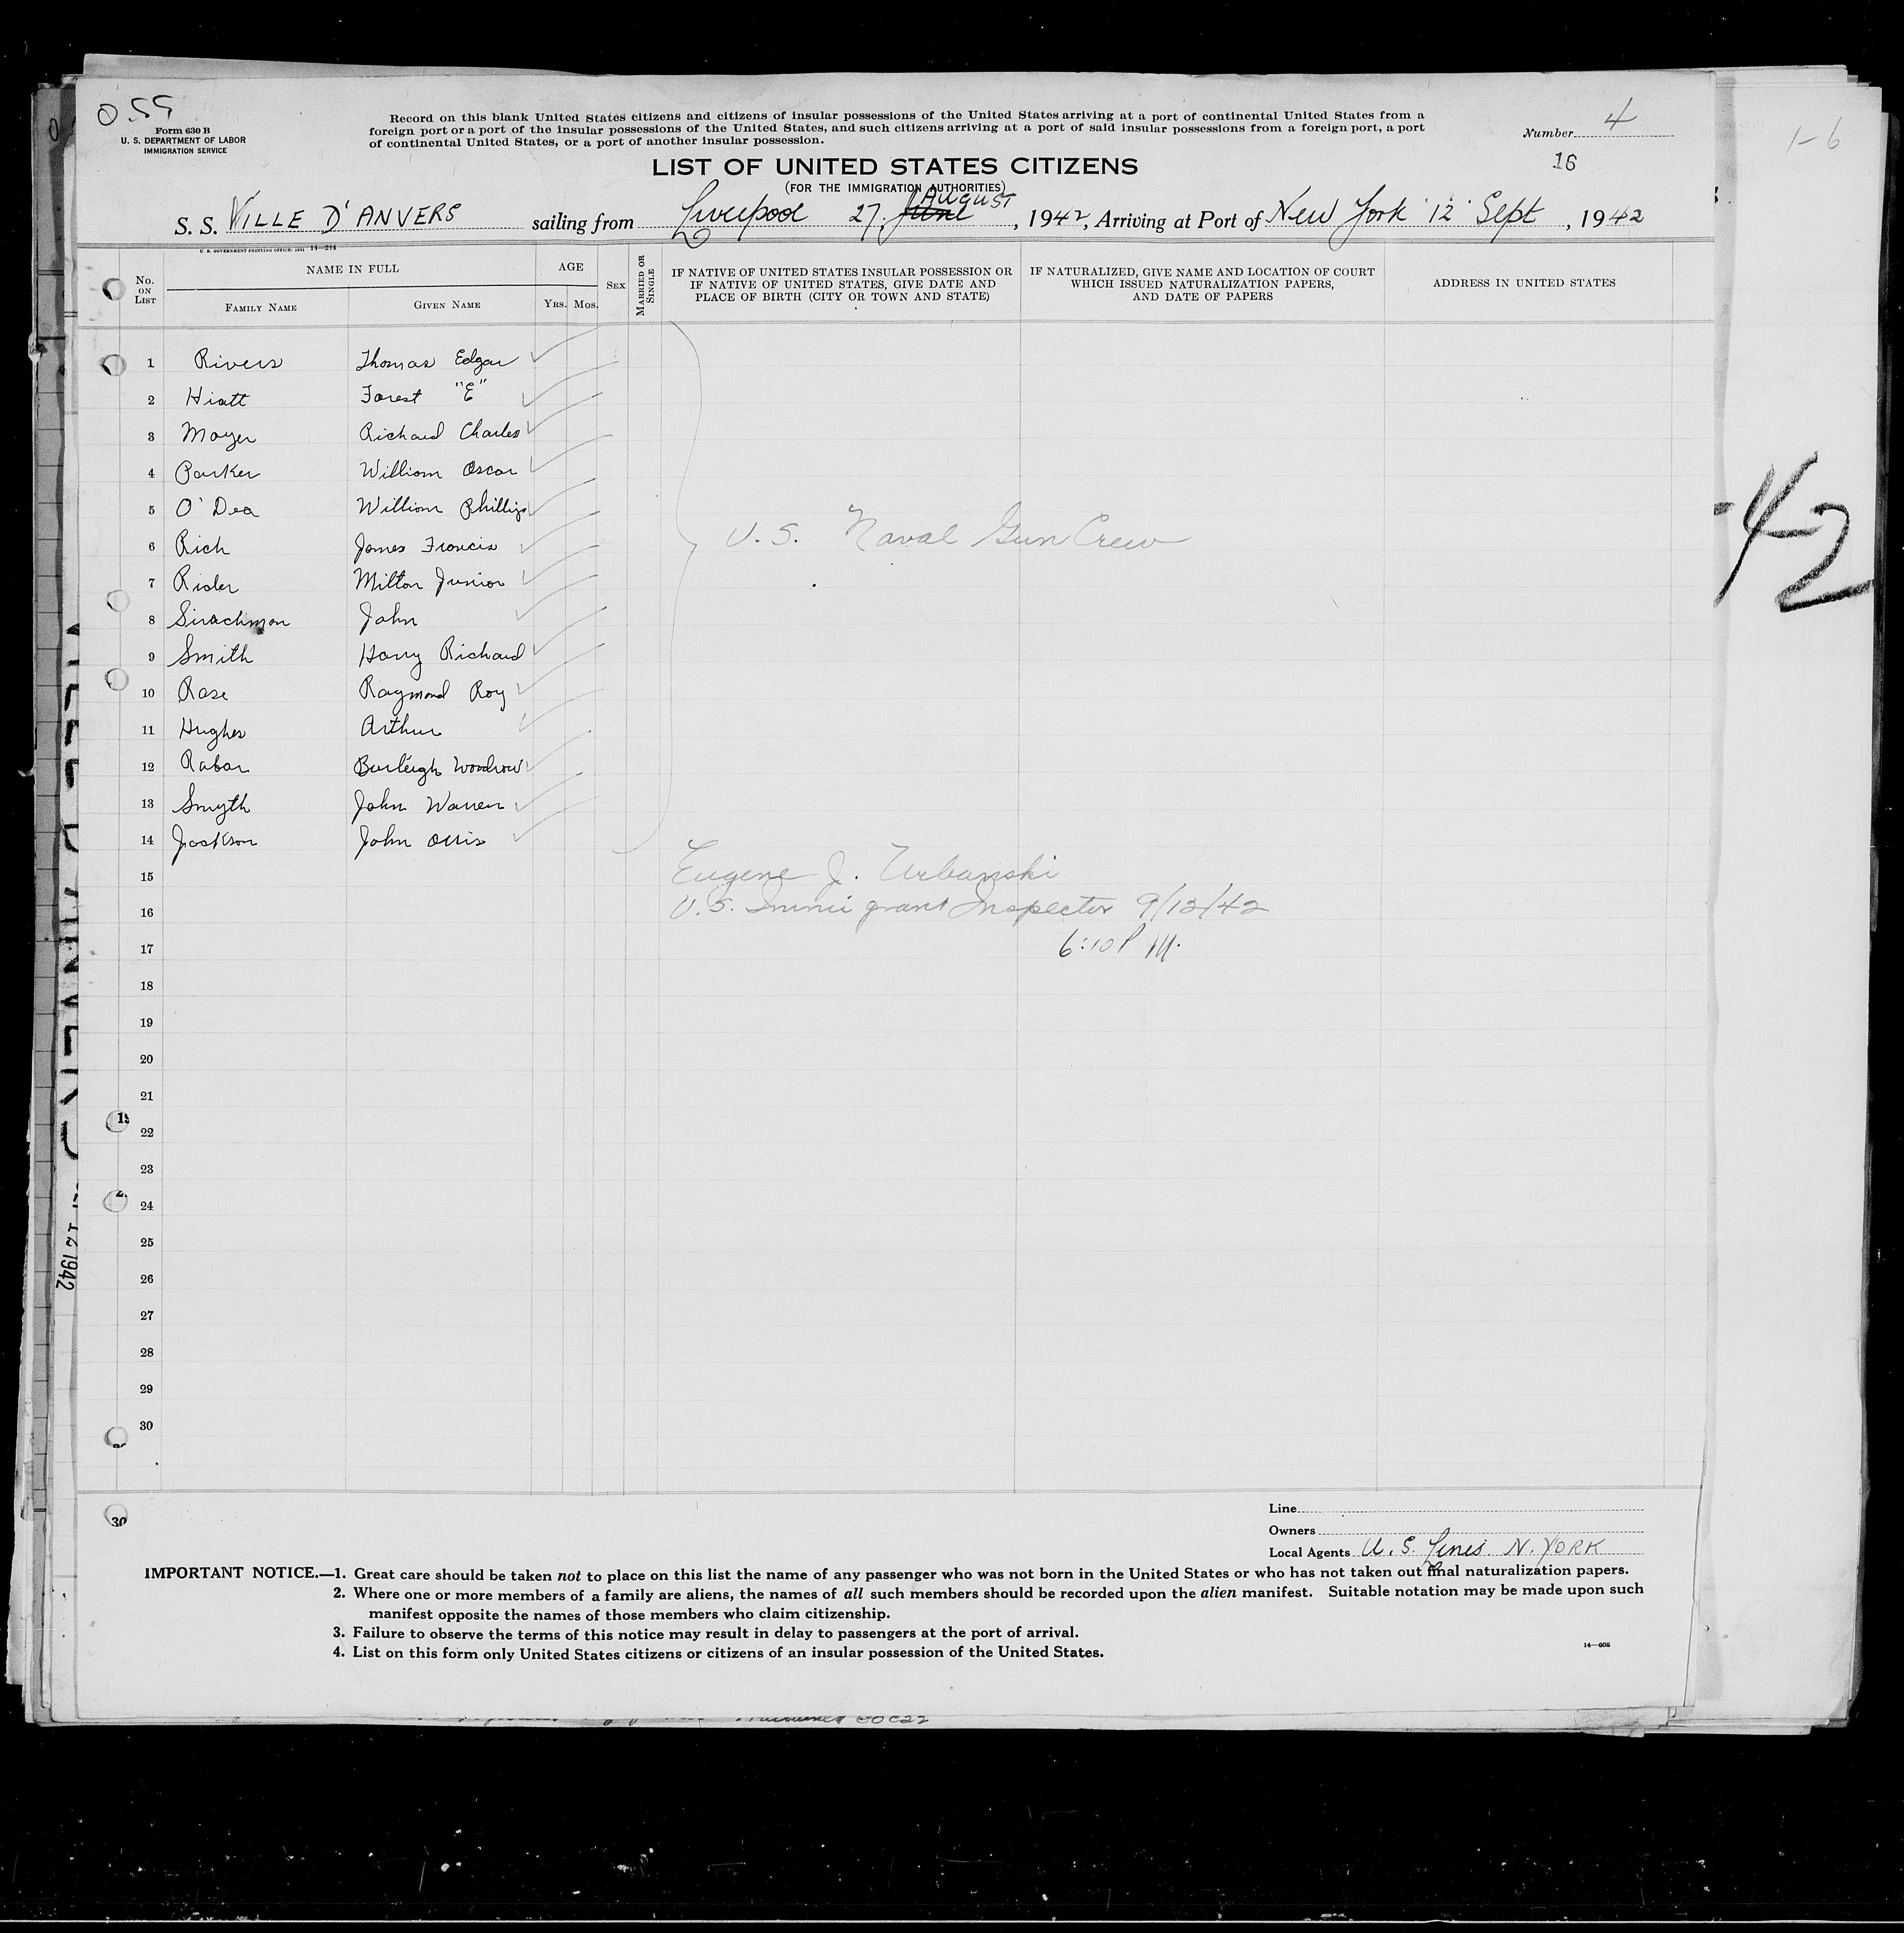 0.55
Form 630 B
U. S. DEPARTMENT OF LABOR
IMMIGRATION SERVICE
Record on this blank United States citizens and citizens of insular possessions of the United States arriving at a port of continental United States from a
foreign port or a port of the insular possessions of the United States, and such citizens arriving at a port of said insular possessions from a foreign port, a port
of continental United States, or a port of another insular possession.
Number 4
16
1-6
LIST OF UNITED STATES CITIZENS
(FOR THE IMMIGRATION AUTHORITIES)
S. S. VILLE D'ANVERS sailing from Liverpool 27, June August, 1942, Arriving at Port of New York 12 Sept, 1942
U. S. GOVERNMENT PRINTING OFFICE: 1931 14—214
No. ON LIST
NAME IN FULL
FAMILY NAME GIVEN NAME
AGE
YRS. MOS.
SEX
MARRIED OR SINGLE
IF NATIVE OF UNITED STATES INSULAR POSSESSION OR
IF NATIVE OF UNITED STATES, GIVE DATE AND
PLACE OF BIRTH (CITY OR TOWN AND STATE)
IF NATURALIZED, GIVE NAME AND LOCATION OF COURT
WHICH ISSUED NATURALIZATION PAPERS,
AND DATE OF PAPERS
ADDRESS IN UNITED STATES
1 Rivers Thomas Edgar
2 Hiatt Forest "E"
3 Moyer Richard Charles
4 Parker William Oscar
5 O'Dea William Phillips
6 Rich James Francis
7 Rider Milton Junior
8 Sirachman John
9 Smith Harry Richard
10 Rase Raymond Roy
11 Hughes Arthur
12 Rabon Burleigh Woodrow
13 Smyth John Warren
14 Jackson John Orris
U. S. Naval Gun Crew
-42
15
Eugene J. Urbanski
16
U. S. Immigrant Inspector 9/12/42
17
6:10 P M.
18
19
20
21
22
23
24
25
26
27
28
29
30
30
1942
Line
Owners
Local Agents U. S. Lines N. YORK
IMPORTANT NOTICE.—1. Great care should be taken not to place on this list the name of any passenger who was not born in the United States or who has not taken out final naturalization papers.
2. Where one or more members of a family are aliens, the names of all such members should be recorded upon the alien manifest. Suitable notation may be made upon such
manifest opposite the names of those members who claim citizenship.
3. Failure to observe the terms of this notice may result in delay to passengers at the port of arrival.
4. List on this form only United States citizens or citizens of an insular possession of the United States.
14—608